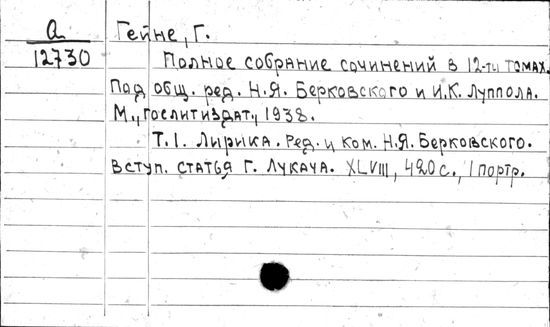 а Гейне, Г.
12730 Полное собрание сочинений в 12-ти томах.
Под общ. ред. Н.Я. Берковского и И.К. Луппола.
М., Гослитиздат, 1938.
Т.1. Лирика. Ред. и ком. Н.Я. Берковского.
Вступ. статья Г. Лукача. XLVIII, 420 с., 1 портр.